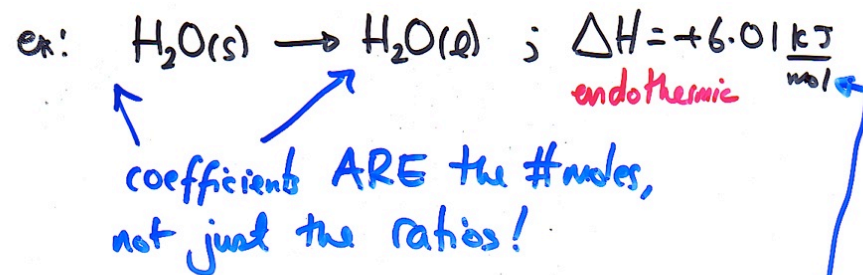 ex: H₂O(s) → H₂O(l) ; ΔH = +6.01 kJ/mol
endothermic
coefficients ARE the #moles,
not just the ratios!